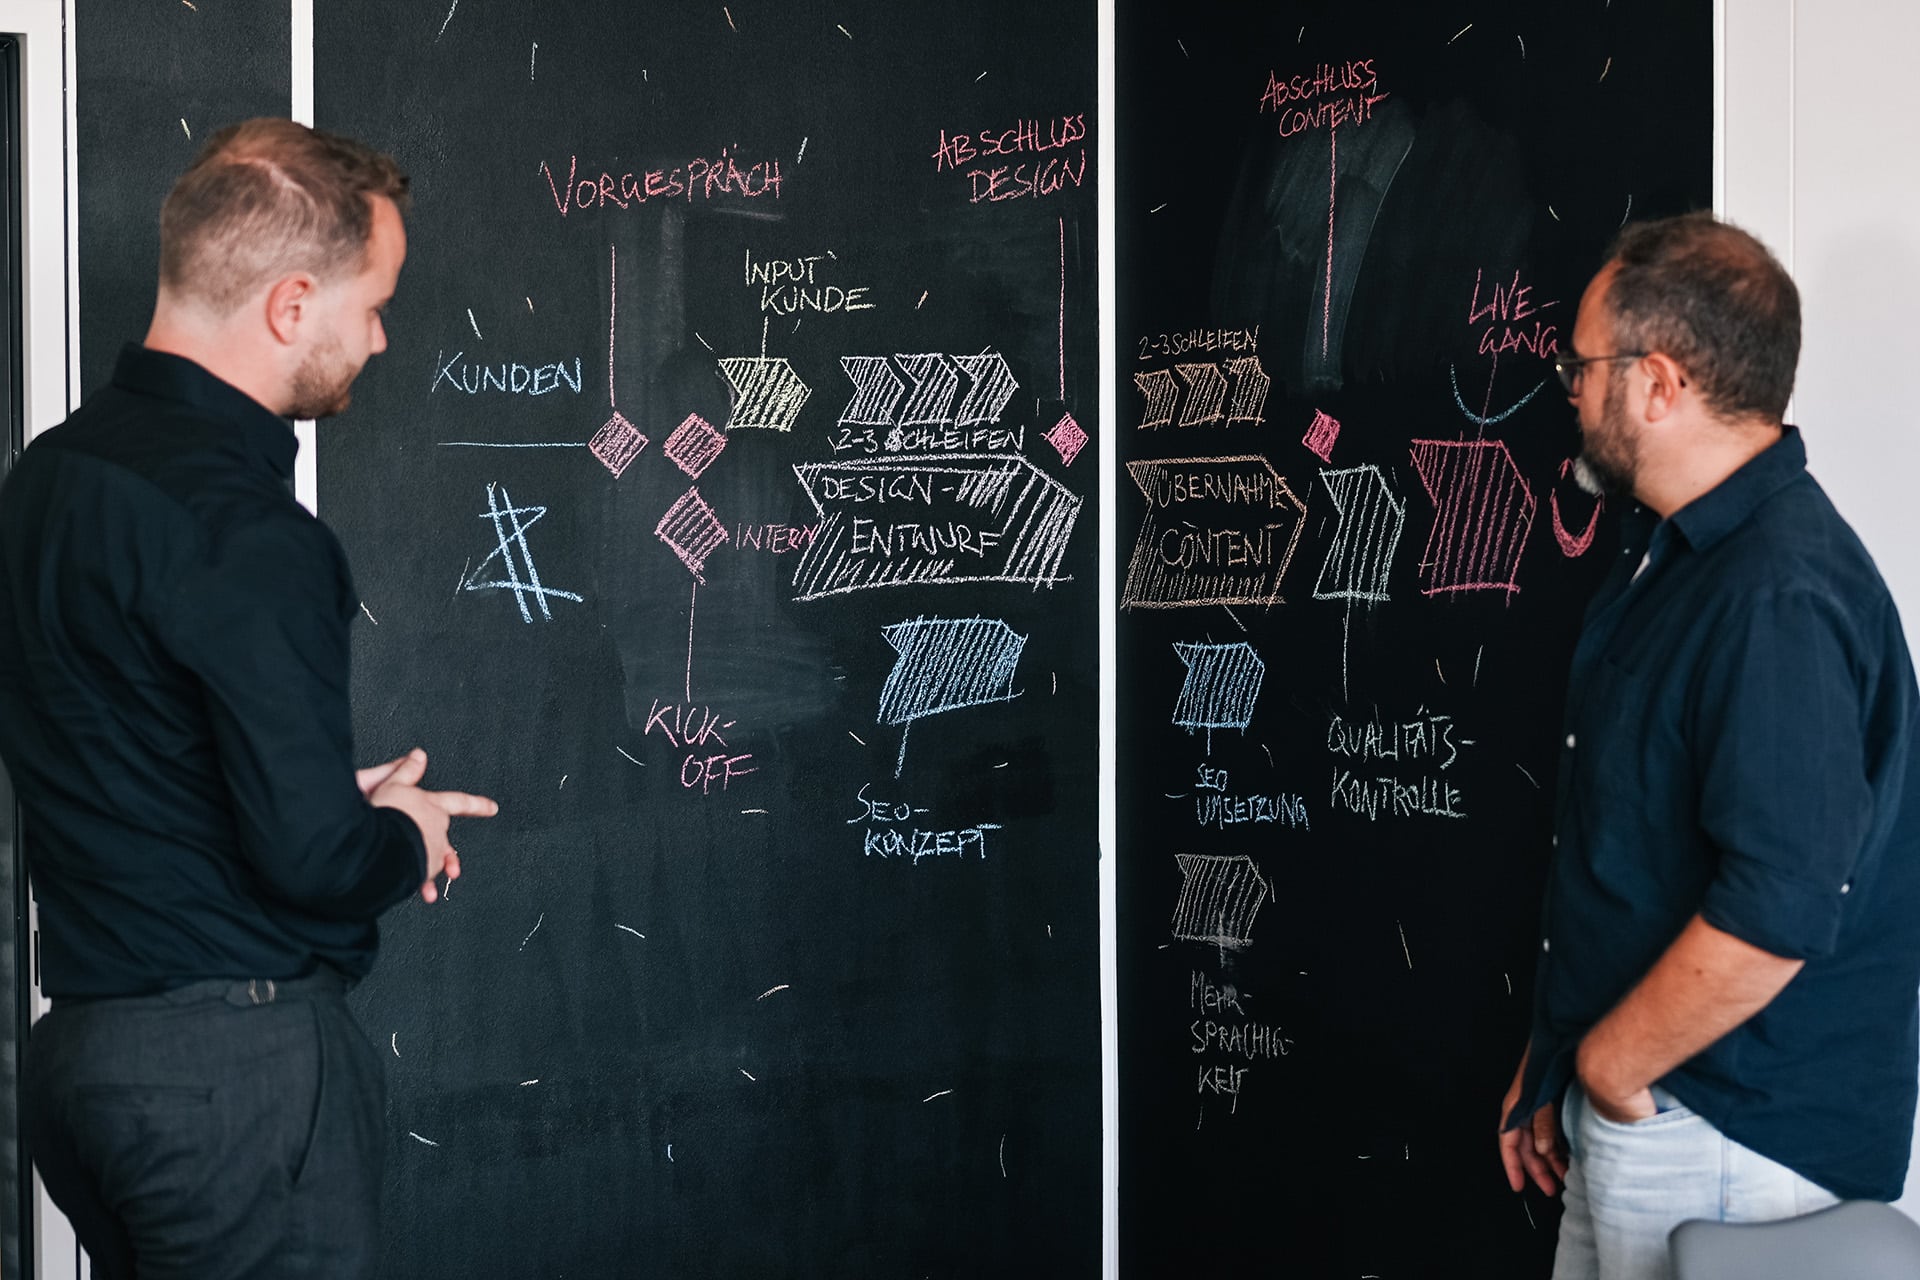 VORGESPRÄCH
ABSCHLUSS
DESIGN
INPUT
KUNDE
KUNDEN
2-3 SCHLEIFEN
DESIGN-
ENTWURF
INTERN
KICK-
OFF
SEO-
KONZEPT
ABSCHLUSS
CONTENT
LIVE-
GANG
2-3 SCHLEIFEN
ÜBERNAHME
CONTENT
SEO
UMSETZUNG
QUALITÄTS-
KONTROLLE
MEHR-
SPRACHIG-
KEIT